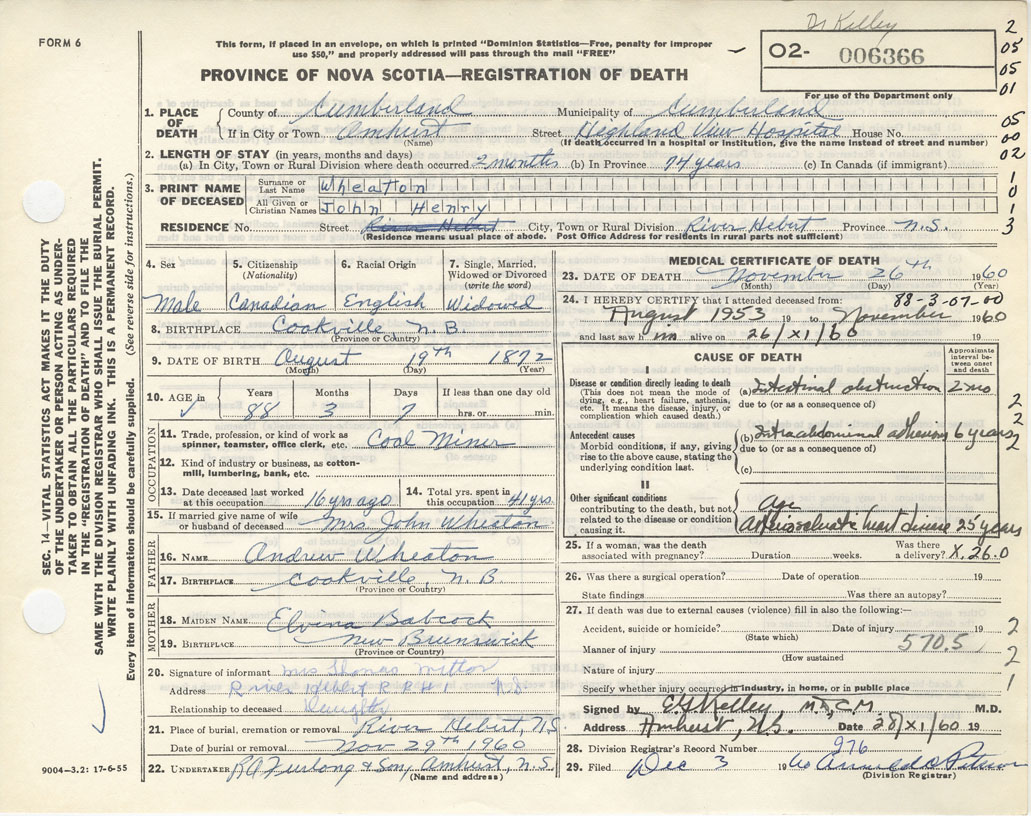 Dr Kelley
FORM 6
This form, if placed in an envelope, on which is printed "Dominion Statistics—Free, penalty for improper
use $50," and properly addressed will pass through the mail "FREE"
O2- 006366
For use of the Department only
PROVINCE OF NOVA SCOTIA—REGISTRATION OF DEATH
2
05
05
01
05
00
02
1
0
1
3
1. PLACE OF DEATH
County of Cumberland Municipality of Cumberland
If in City or Town Amhurst Street Highland View Hospital House No.
(Name) (If death occurred in a hospital or institution, give the name instead of street and number)
2. LENGTH OF STAY (in years, months and days)
(a) In City, Town or Rural Division where death occurred 2 months (b) In Province 74 years (c) In Canada (if immigrant)
3. PRINT NAME OF DECEASED
Surname or Last Name Wheaton
All Given or Christian Names John Henry
RESIDENCE No. Street River Hebert City, Town or Rural Division River Hebert Province N.S.
(Residence means usual place of abode. Post Office Address for residents in rural parts not sufficient)
4. Sex
Male
5. Citizenship
(Nationality)
Canadian
6. Racial Origin
English
7. Single, Married,
Widowed or Divorced
(write the word)
Widowed
8. BIRTHPLACE Cookville, N.B.
(Province or Country)
9. DATE OF BIRTH August 19th 1872
(Month) (Day) (Year)
10. AGE in Years Months Days If less than one day old
88 3 7 hrs. or min.
OCCUPATION
11. Trade, profession, or kind of work as
spinner, teamster, office clerk, etc. Coal Miner
12. Kind of industry or business, as cotton-
mill, lumbering, bank, etc.
13. Date deceased last worked
at this occupation 16 yrs ago
14. Total yrs. spent in
this occupation 41 yrs.
15. If married give name of wife
or husband of deceased Mrs John Wheaton
FATHER
16. NAME Andrew Wheaton
17. BIRTHPLACE Cookville, N.B
(Province or Country)
MOTHER
18. MAIDEN NAME Elvina Babcock
19. BIRTHPLACE New Brunswick
(Province or Country)
20. Signature of informant Mrs Thomas Mitton
Address River Hebert R R # 1 N.S.
Relationship to deceased Daughter
21. Place of burial, cremation or removal River Hebert, N.S
Date of burial or removal Nov 29th 1960
22. UNDERTAKER R A Furlong & Son, Amhurst, N.S.
(Name and address)
MEDICAL CERTIFICATE OF DEATH
23. DATE OF DEATH November 26th 1960
(Month) (Day) (Year)
24. I HEREBY CERTIFY that I attended deceased from: 88-3-07-00
August 1953 19 to November 1960
and last saw him alive on 26/XI/60 19
CAUSE OF DEATH
Approximate
interval between onset
and death
I
Disease or condition directly leading to death
(This does not mean the mode of
dying, e.g., heart failure, asthenia,
etc. It means the disease, injury, or
complication which caused death.)
(a) Intestinal obstruction 2 mo
due to (or as a consequence of)
Antecedent causes
Morbid conditions, if any, giving
rise to the above cause, stating the
underlying condition last.
(b) Intraabdominal adhesions 6 years
due to (or as a consequence of)
(c)
II
Other significant conditions
contributing to the death, but not
related to the disease or condition
causing it.
Age
Arteriosclerotic heart disease 25 years
2
2
2
25. If a woman, was the death
associated with pregnancy? Duration weeks.
Was there
a delivery? X.26.0
26. Was there a surgical operation? Date of operation 19
State findings Was there an autopsy?
27. If death was due to external causes (violence) fill in also the following:—
Accident, suicide or homicide? Date of injury 19
(State which)
570.5
Manner of injury
(How sustained
Nature of injury
Specify whether injury occurred in industry, in home, or in public place
2
2
1
Signed by Kelley, M.D.C.M M.D.
Address Amherst, N.S. Date 28/XI/60 19
28. Division Registrar's Record Number 276
29. Filed Dec 3 1960
(Division Registrar)
SEC. 14—VITAL STATISTICS ACT MAKES IT THE DUTY
OF THE UNDERTAKER OR PERSON ACTING AS UNDER-
TAKER TO OBTAIN ALL THE PARTICULARS REQUIRED
IN THE REGISTRATION OF DEATH AND FILE THE
SAME WITH THE DIVISION REGISTRAR WHO SHALL ISSUE THE BURIAL PERMIT.
WRITE PLAINLY WITH UNFADING INK. THIS IS A PERMANENT RECORD.
Every item of information should be carefully supplied. (See reverse side for instructions.)
9004—3.2: 17-6-55